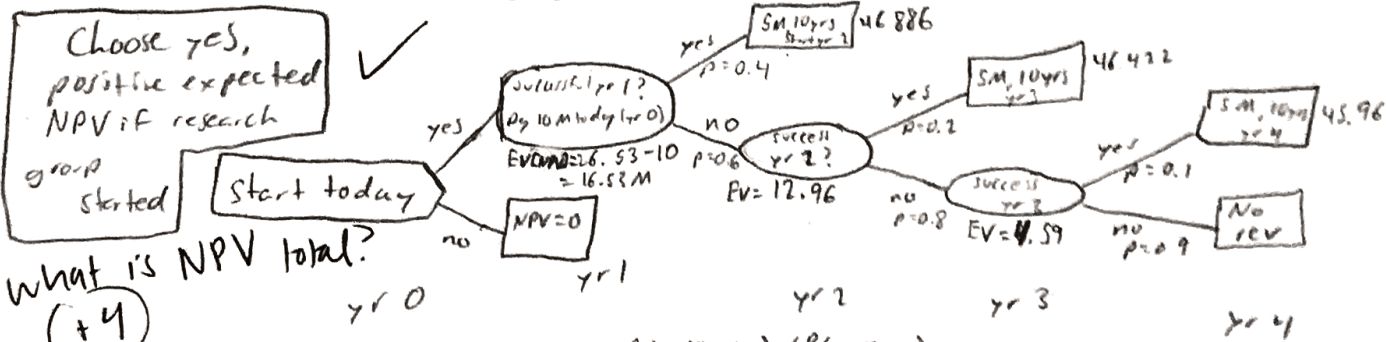 Choose yes,
positive expected
NPV if research
group
started
Start today
yes
no
NPV=0
successful yr 1?
Pay 10M today (yr 0)
= 16.53M
yes
p=0.4
5M, 10yrs
start yr 2
46.886
no
p=0.6
success
yr 2?
EV= 12.96
yes
p=0.2
5M, 10yrs
46.422
no
p=0.8
success
yr 3
EV= 4.59
yes
p=0.1
5M, 10yrs
yr 4
45.96
no
p=0.9
No
rev
what is NPV total?
+4
yr 0
yr 1
yr 2
yr 3
yr 4